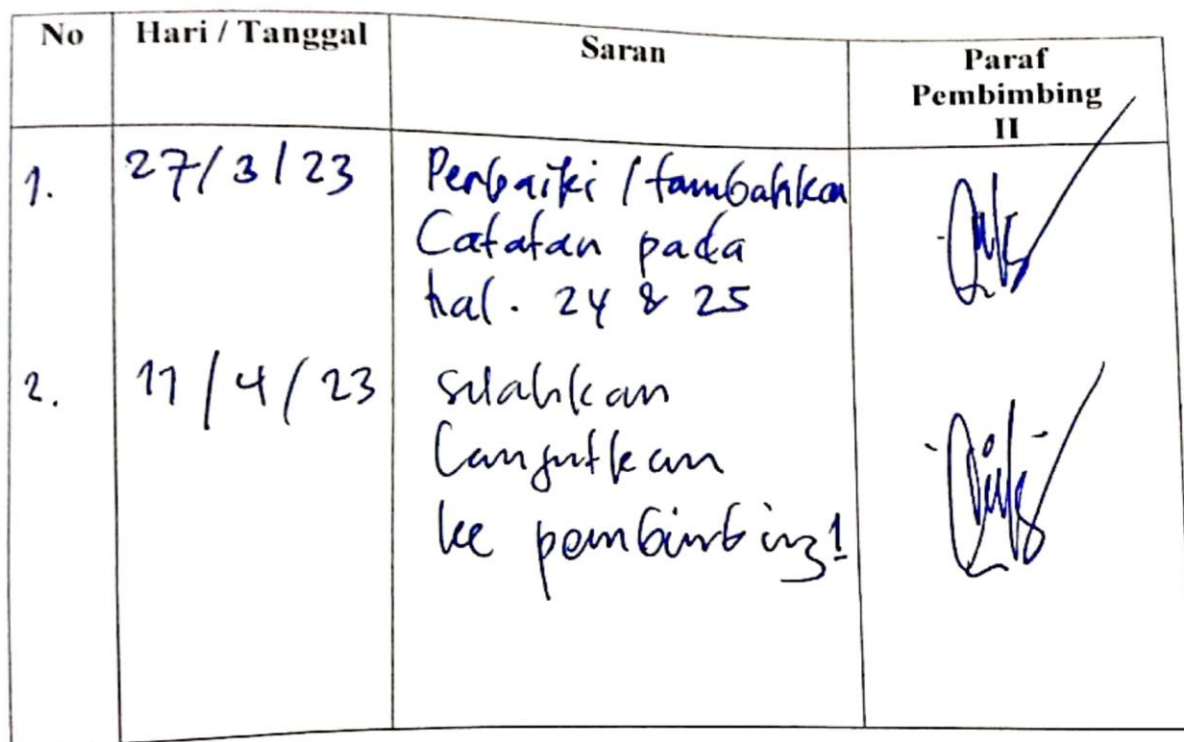 No Hari / Tanggal Saran Paraf
Pembimbing
II
1. 27/3/23 Perbaiki / tambahkan
Catatan pada
hal. 24 & 25
2. 11/4/23 silahkan
Lanjutkan
ke pembimbing 1